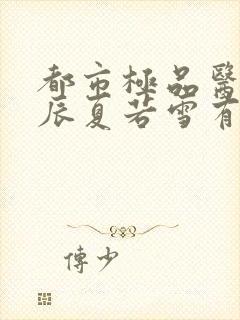 都市極品醫
辰夏若雪有
傅少